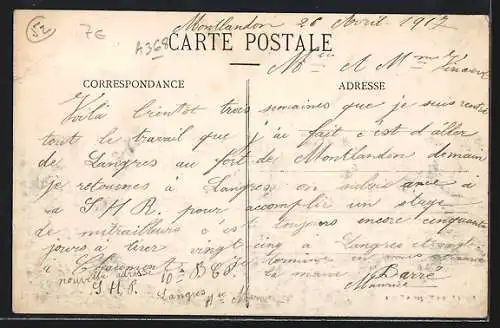 52
7E
A368
Montlandon 26 Avril 1917
CARTE POSTALE
Mr et Mme Vincent
CORRESPONDANCE
ADRESSE
Voilà bientôt trois semaines que je suis rentré
tout le travail que j'ai fait c'est d'aller
de Langres au fort de Montlandon demain
je retourne à Langres
a S.H.R. pour accomplir un stage
de mitrailleurs c'est toujours encore cinquante
jours à tirer vingt cinq à Langres et
à Chaumont je termine en vous
la main Barré
nouvelle adresse 10e B C P Maurice
S.H.R. Langres Hte Marne